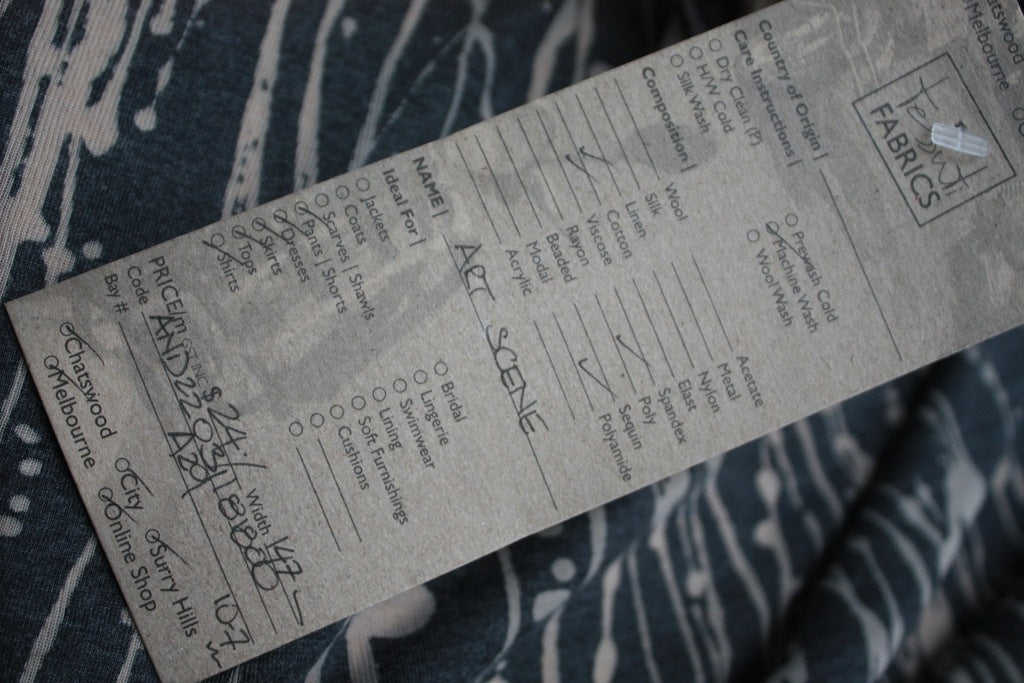 Tessuti
FABRICS
Country of Origin |
Care Instructions |
Dry Clean (P)
H/W Cold
Silk Wash
Prewash Cold
Machine Wash
Wool Wash
Composition |
Wool
Silk
Linen
Cotton
Viscose
Rayon
Beaded
Modal
Acrylic
Acetate
Metal
Nylon
Elast
Spandex
Poly
Sequin
Polyamide
NAME | ART SCENE
Ideal For |
Jackets
Coats
Scarves | Shawls
Pants | Shorts
Dresses
Skirts
Tops
Shirts
Bridal
Lingerie
Swimwear
Lining
Soft Furnishings
Cushions
PRICE/m GST INC $24.-/ Width 147
Code
Bay # A20 10-7
Chatswood
City
Surry Hills
Melbourne
Online Shop
Chatswood
Melbourne